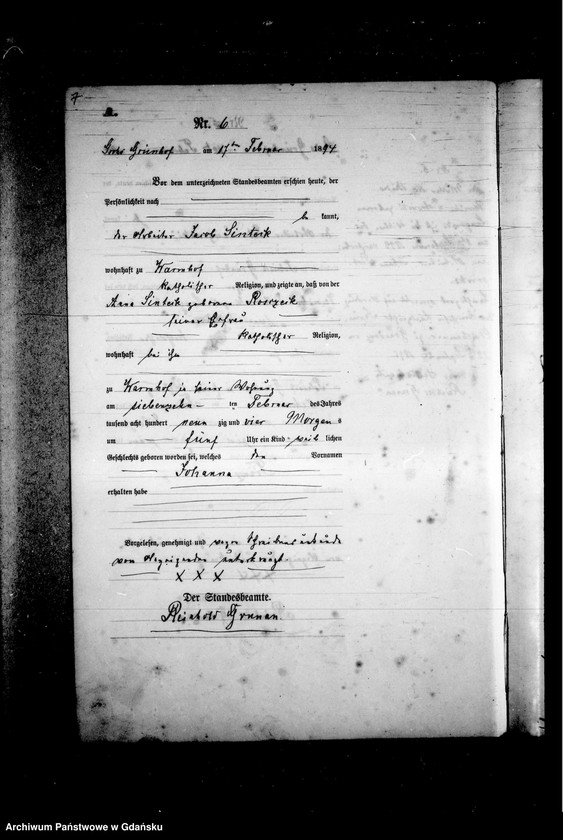 7
A.
Nr. 6
Grünhof am 17ten Februar 1894
Vor dem unterzeichneten Standesbeamten erschien heute, der
Persönlichkeit nach
be kannt,
der Arbeiter Jacob Sinteik
wohnhaft zu Warmhof
katholischer Religion, und zeigte an, daß von der
Anna Sinteik geborene
seiner Ehefrau
katholischer Religion,
wohnhaft bei ihm
zu Warmhof in seiner Wohnung
am siebenzehn ten Februar des Jahres
tausend acht hundert neun zig und vier Morgens
um fünf Uhr ein Kind weib lichen
Geschlechts geboren worden sei, welches den Vornamen
Johanna
erhalten habe
Vorgelesen, genehmigt und wegen
von unterkreuzt.
X X X
Der Standesbeamte.
Reinhold Grunau
Archiwum Państwowe w Gdańsku